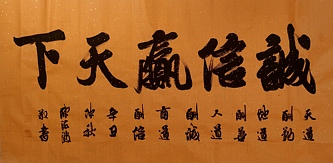 誠信贏天下
天道
酬勤
地道
酬善
人道
酬誠
商道
酬信
辛丑
仲秋